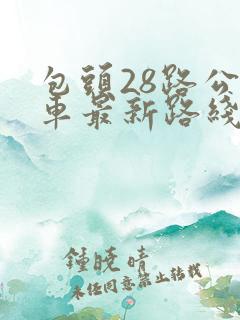 包頭28路公
車最新路綫
鍾曉晴
未经同意禁止转载